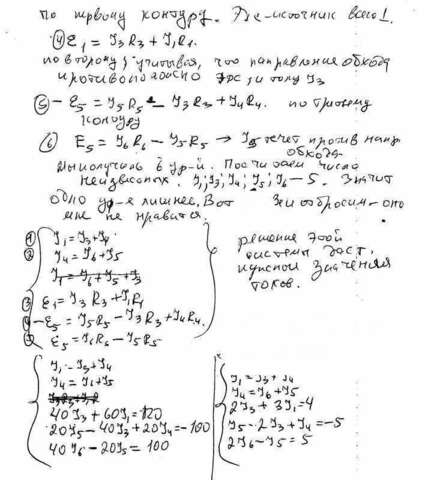 по первому контуру. Где-источник всего 1.
④ Ɛ₁ = У₃R₃ + У₁R₁.
по второму, учитывая, что направление обхода
противоположно ЭДС и току У₃
⑤ - Ɛ₅ = У₅R₅ - У₃R₃ + У₄R₄. по третьему
контуру
⑥ Ɛ₅ = У₆R₆ - У₅R₅ → У₅ течет против напр.
обхода.
Мы получили 6 ур-й. Посчитаем число
неизвестных. У₁; У₃; У₄; У₅; У₆ - 5. Значит
одно ур-е лишнее. Вот его отбросим - оно
мне не нравится.
① У₁ = У₃ + У₄
② У₄ = У₆ + У₅
У₁ = У₆ + У₅ + У₃
③ Ɛ₁ = У₃R₃ + У₁R₁
④ - Ɛ₅ = У₅R₅ - У₃R₃ + У₄R₄.
⑤ Ɛ₅ = У₆R₆ - У₅R₅
решение этой
системы даст
значения
токов.
У₁ = У₃ + У₄
У₄ = У₆ + У₅
40У₃ + 60У₁ = 120
20У₅ - 40У₃ + 20У₄ = -100
40У₆ - 20У₅ = 100
У₁ = У₃ + У₄
У₄ = У₆ + У₅
2У₃ + 3У₁ = 4
У₅ - 2У₃ + У₄ = -5
2У₆ - У₅ = 5